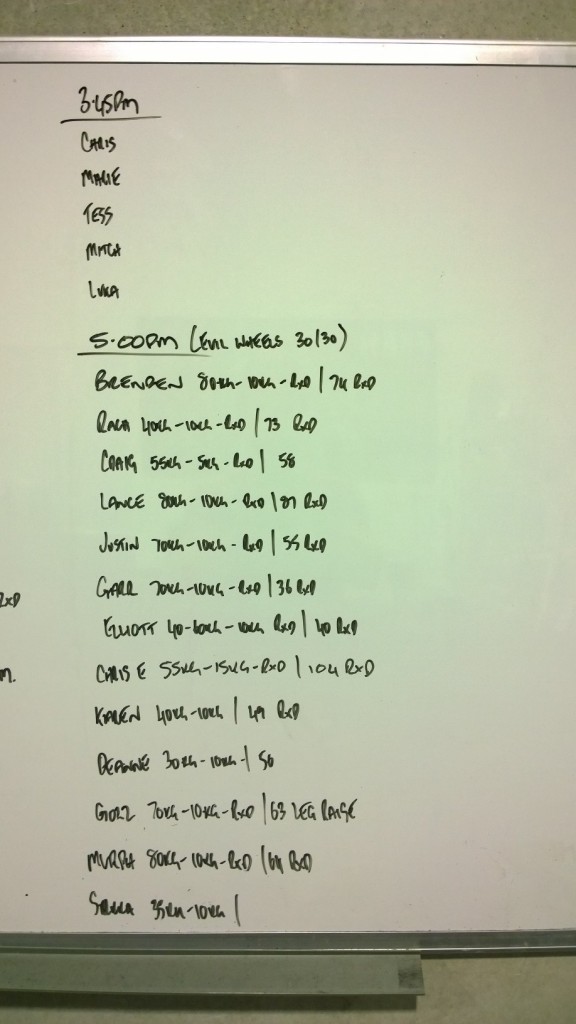 3.45PM
CHRIS
MAGIE
TESS
MITCH
LUKA
5.00PM (EVIL WHEELS 30/30)
BRENDEN 80KG-10KG-RXD | 74 RXD
40KG-10KG-RXD | 73 RXD
CRAIG 55KG-5KG-RXD | 58
LANCE 80KG-10KG-RXD | 87 RXD
JUSTIN 70KG-10KG-RXD | 55 RXD
RXD
GARR 70KG-10KG-RXD | 36 RXD
ELLIOTT 40-60KG-10KG RXD | 40 RXD
M.
CHRIS E 55KG-15KG-RXD | 104 RXD
KAREN 40KG-10KG | 49 RXD
DEANNE 30KG-10KG-| 56
GORZ 70KG-10KG-RXD | 63 LEG RAISE
MURPH 80KG-10KG-RXD | 64 RXD
35KG-10KG |